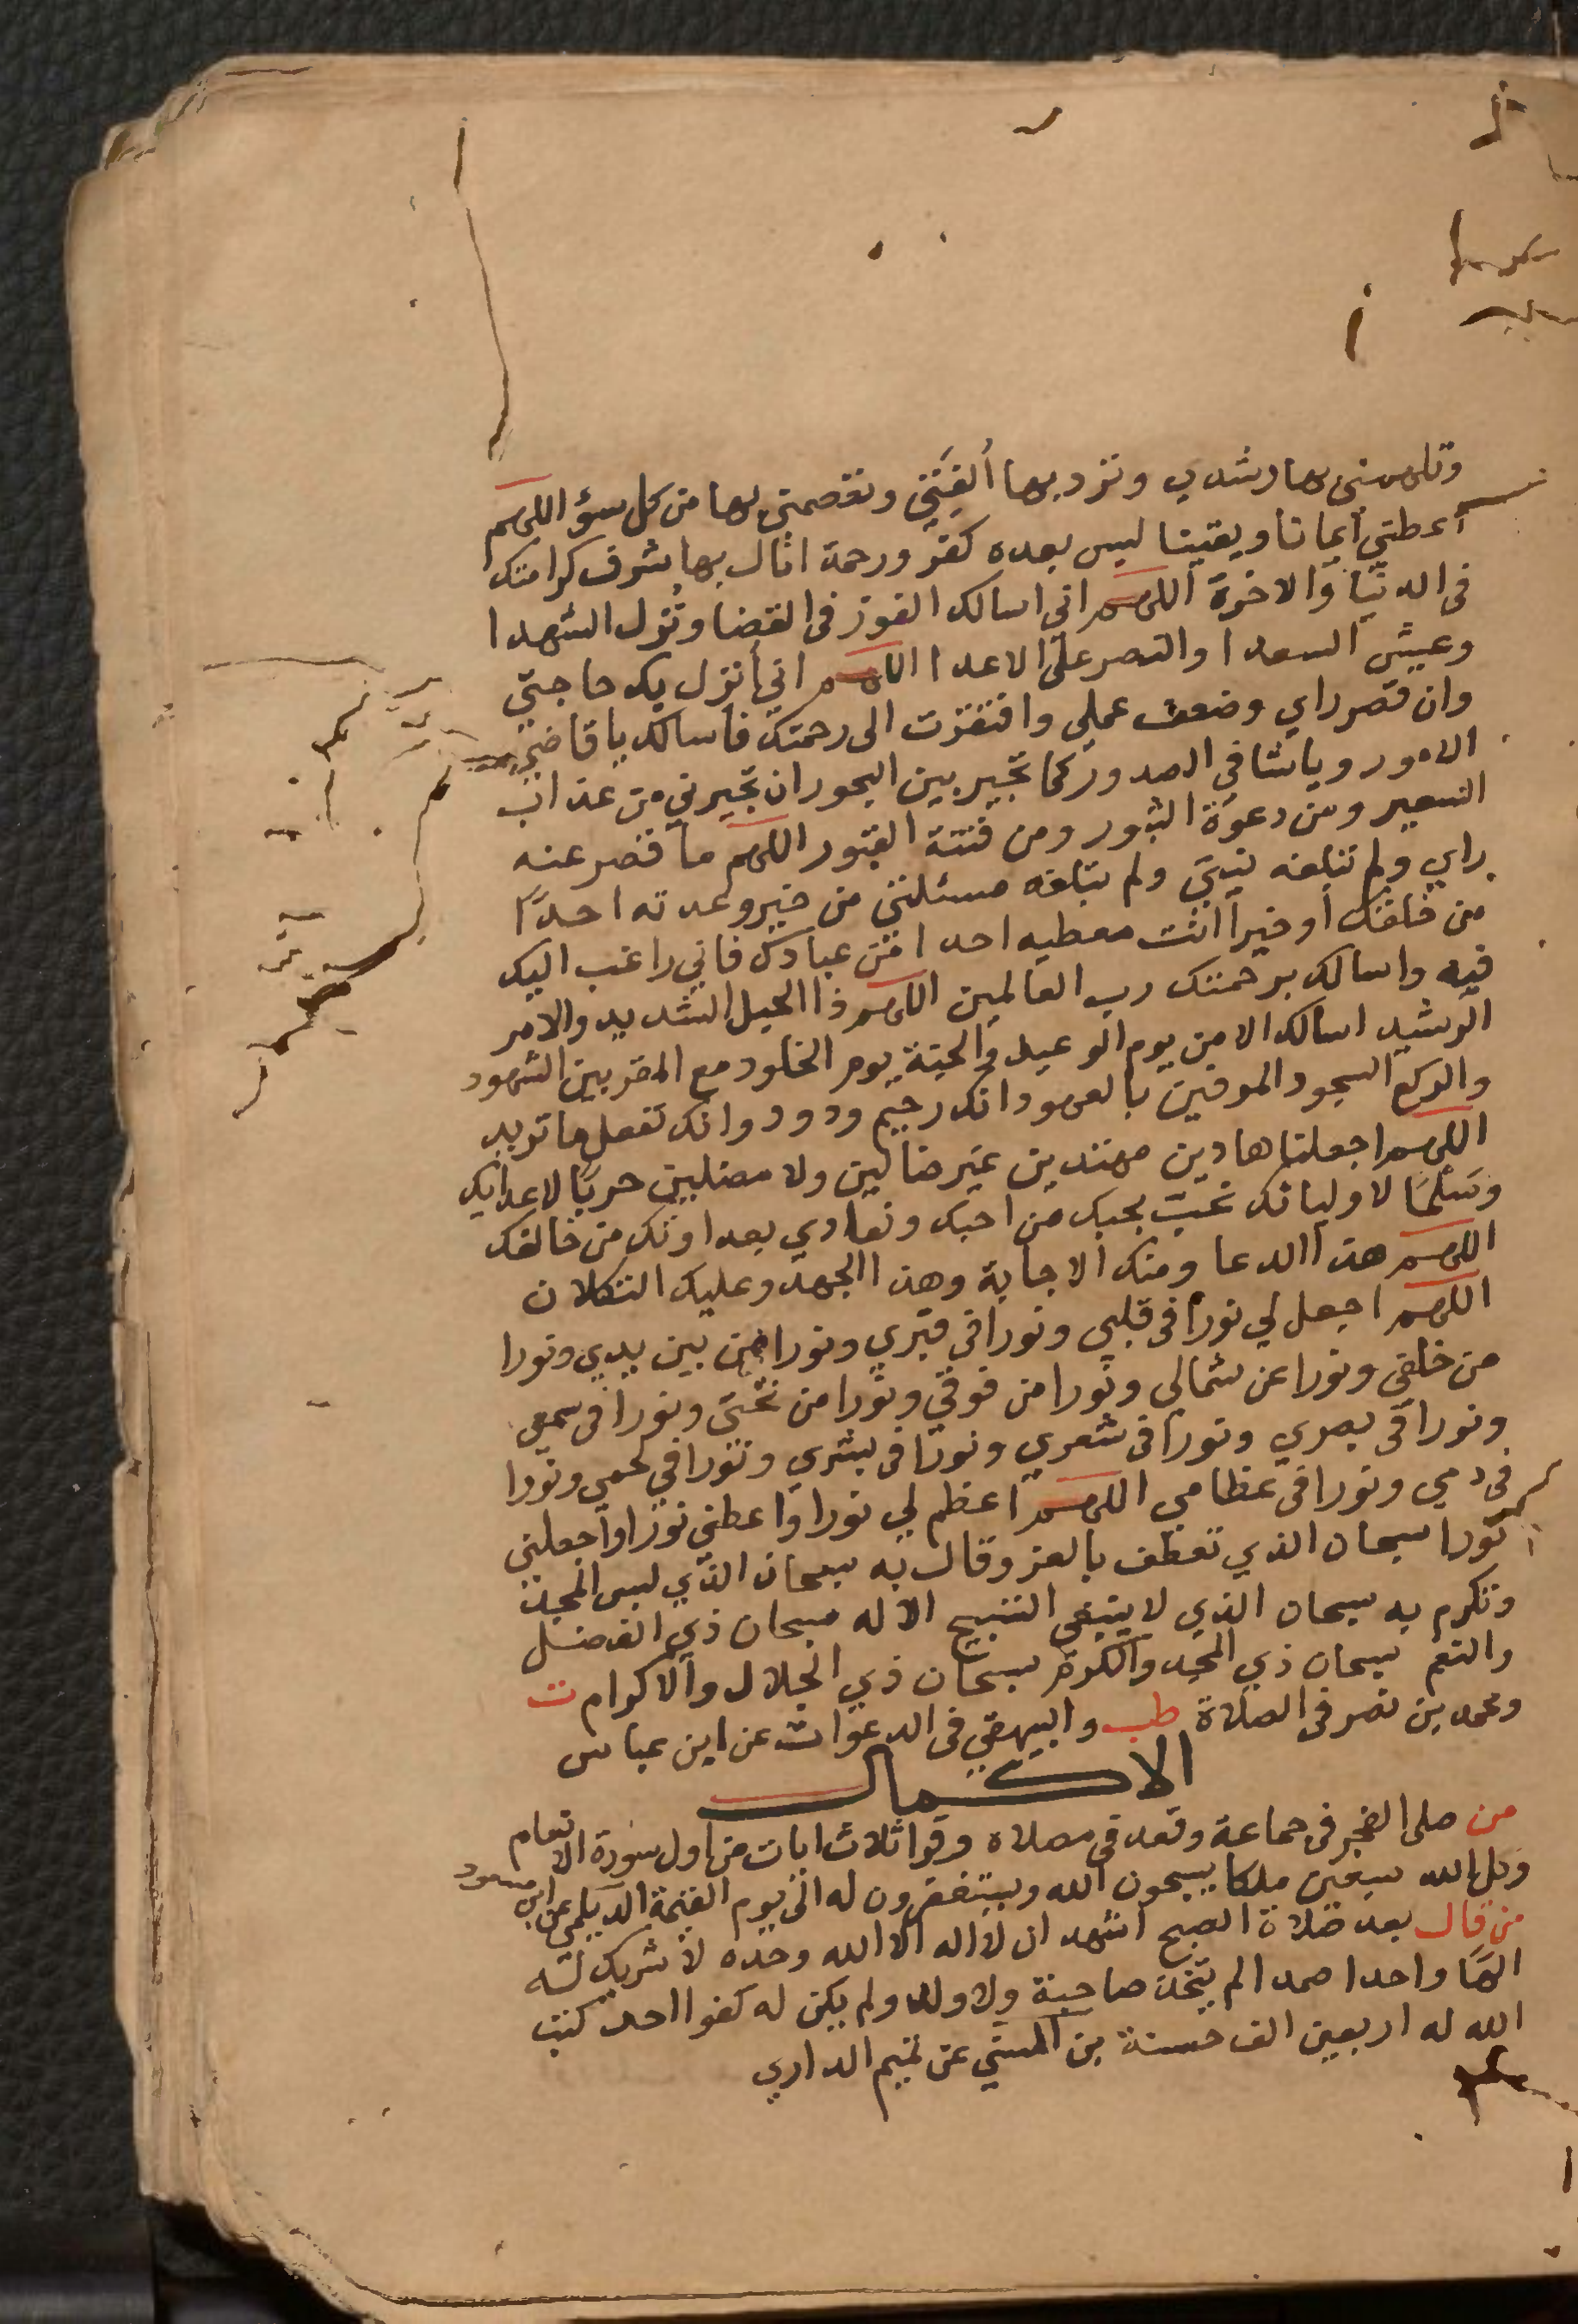 وتلهمني بها رشدي وترد بها ألفتي وتعصمني بها من كل سوء اللهم
أعطني ايمانا ويقينا ليس بعده كفر ورحمة انال بها شرف كرامتك
في الدنيا والاخرة اللهم اني اسالك الفوز في القضا ونُزل الشهدا
وعيش السعدا والنصر على الاعدا اللهم اني أنزل بك حاجتي
وان قصر راي وضعف عملي وافتقرت الى رحمتك فاسالك يا قاضي
الامور ويا شافي الصدور كما تجير بين البحور ان تجيرني من عذاب
السعير ومن دعوة الثبور ومن فتنة القبور اللهم ما قصر عنه
راي ولم تبلغه نيتي ولم تبلغه مسئلتي من خير وعدته احدًا
من خلقك أو خيرا انت معطيه احدا من عبادك فاني راغب اليك
فيه واسالك برحمتك رب العالمين اللهم ذا الحبل الشديد والامر
الرشيد اسالك الامن يوم الوعيد والجنة يوم الخلود مع المقربين الشهود
والركع السجود الموفين بالعهود انك رحيم ودود وانك تفعل ما تريد
اللهم اجعلنا هادين مهتدين غير ضالين ولا مضلين حربًا لاعدايك
وسلمًا لاوليائك نحب بحبك من احبك ونعادي بعداوتك من خالفك
اللهم هذا الدعا ومنك الاجابة وهذا الجهد وعليك التكلان
اللهم اجعل لي نورا في قلبي ونورا في قبري ونورا من بين يدي ونورا
من خلفي ونورا عن شمالي ونورا من فوقي ونورا من تحتي ونورا في سمعي
ونورا في بصري ونورا في شعري ونورا في بشري ونورا في لحمي ونورا
في دمي ونورا في عظامي اللهم اعظم لي نورا واعطني نورا واجعلني
نورا سبحان الذي تعطف بالعز وقال به سبحان الذي لبس المجد
وتكرم به سبحان الذي لا ينبغي التسبيح الا له سبحان ذي الفضل
والنعم سبحان ذي المجد والكرم سبحان ذي الجلال والاكرام ت
ومحمد بن نصر في الصلاة طب والبيهقي في الدعوات عن ابن عباس
الاكمال
من صلى الفجر في جماعة وقعد في مصلاه وقرا ثلاث ايات من اول سورة الانعام
وكل الله سبعين ملكا يسبحون الله ويستغفرون له الى يوم القيمة الديلمي عن ابن مسعود
من قال بعد صلاة الصبح اشهد ان لا اله الا الله وحده لا شريك له
الهًا واحدا صمدا لم يتخذ صاحبة ولا ولدا ولم يكن له كفوا احد كتب
الله له اربعين الف حسنة بن السني عن تميم الداري